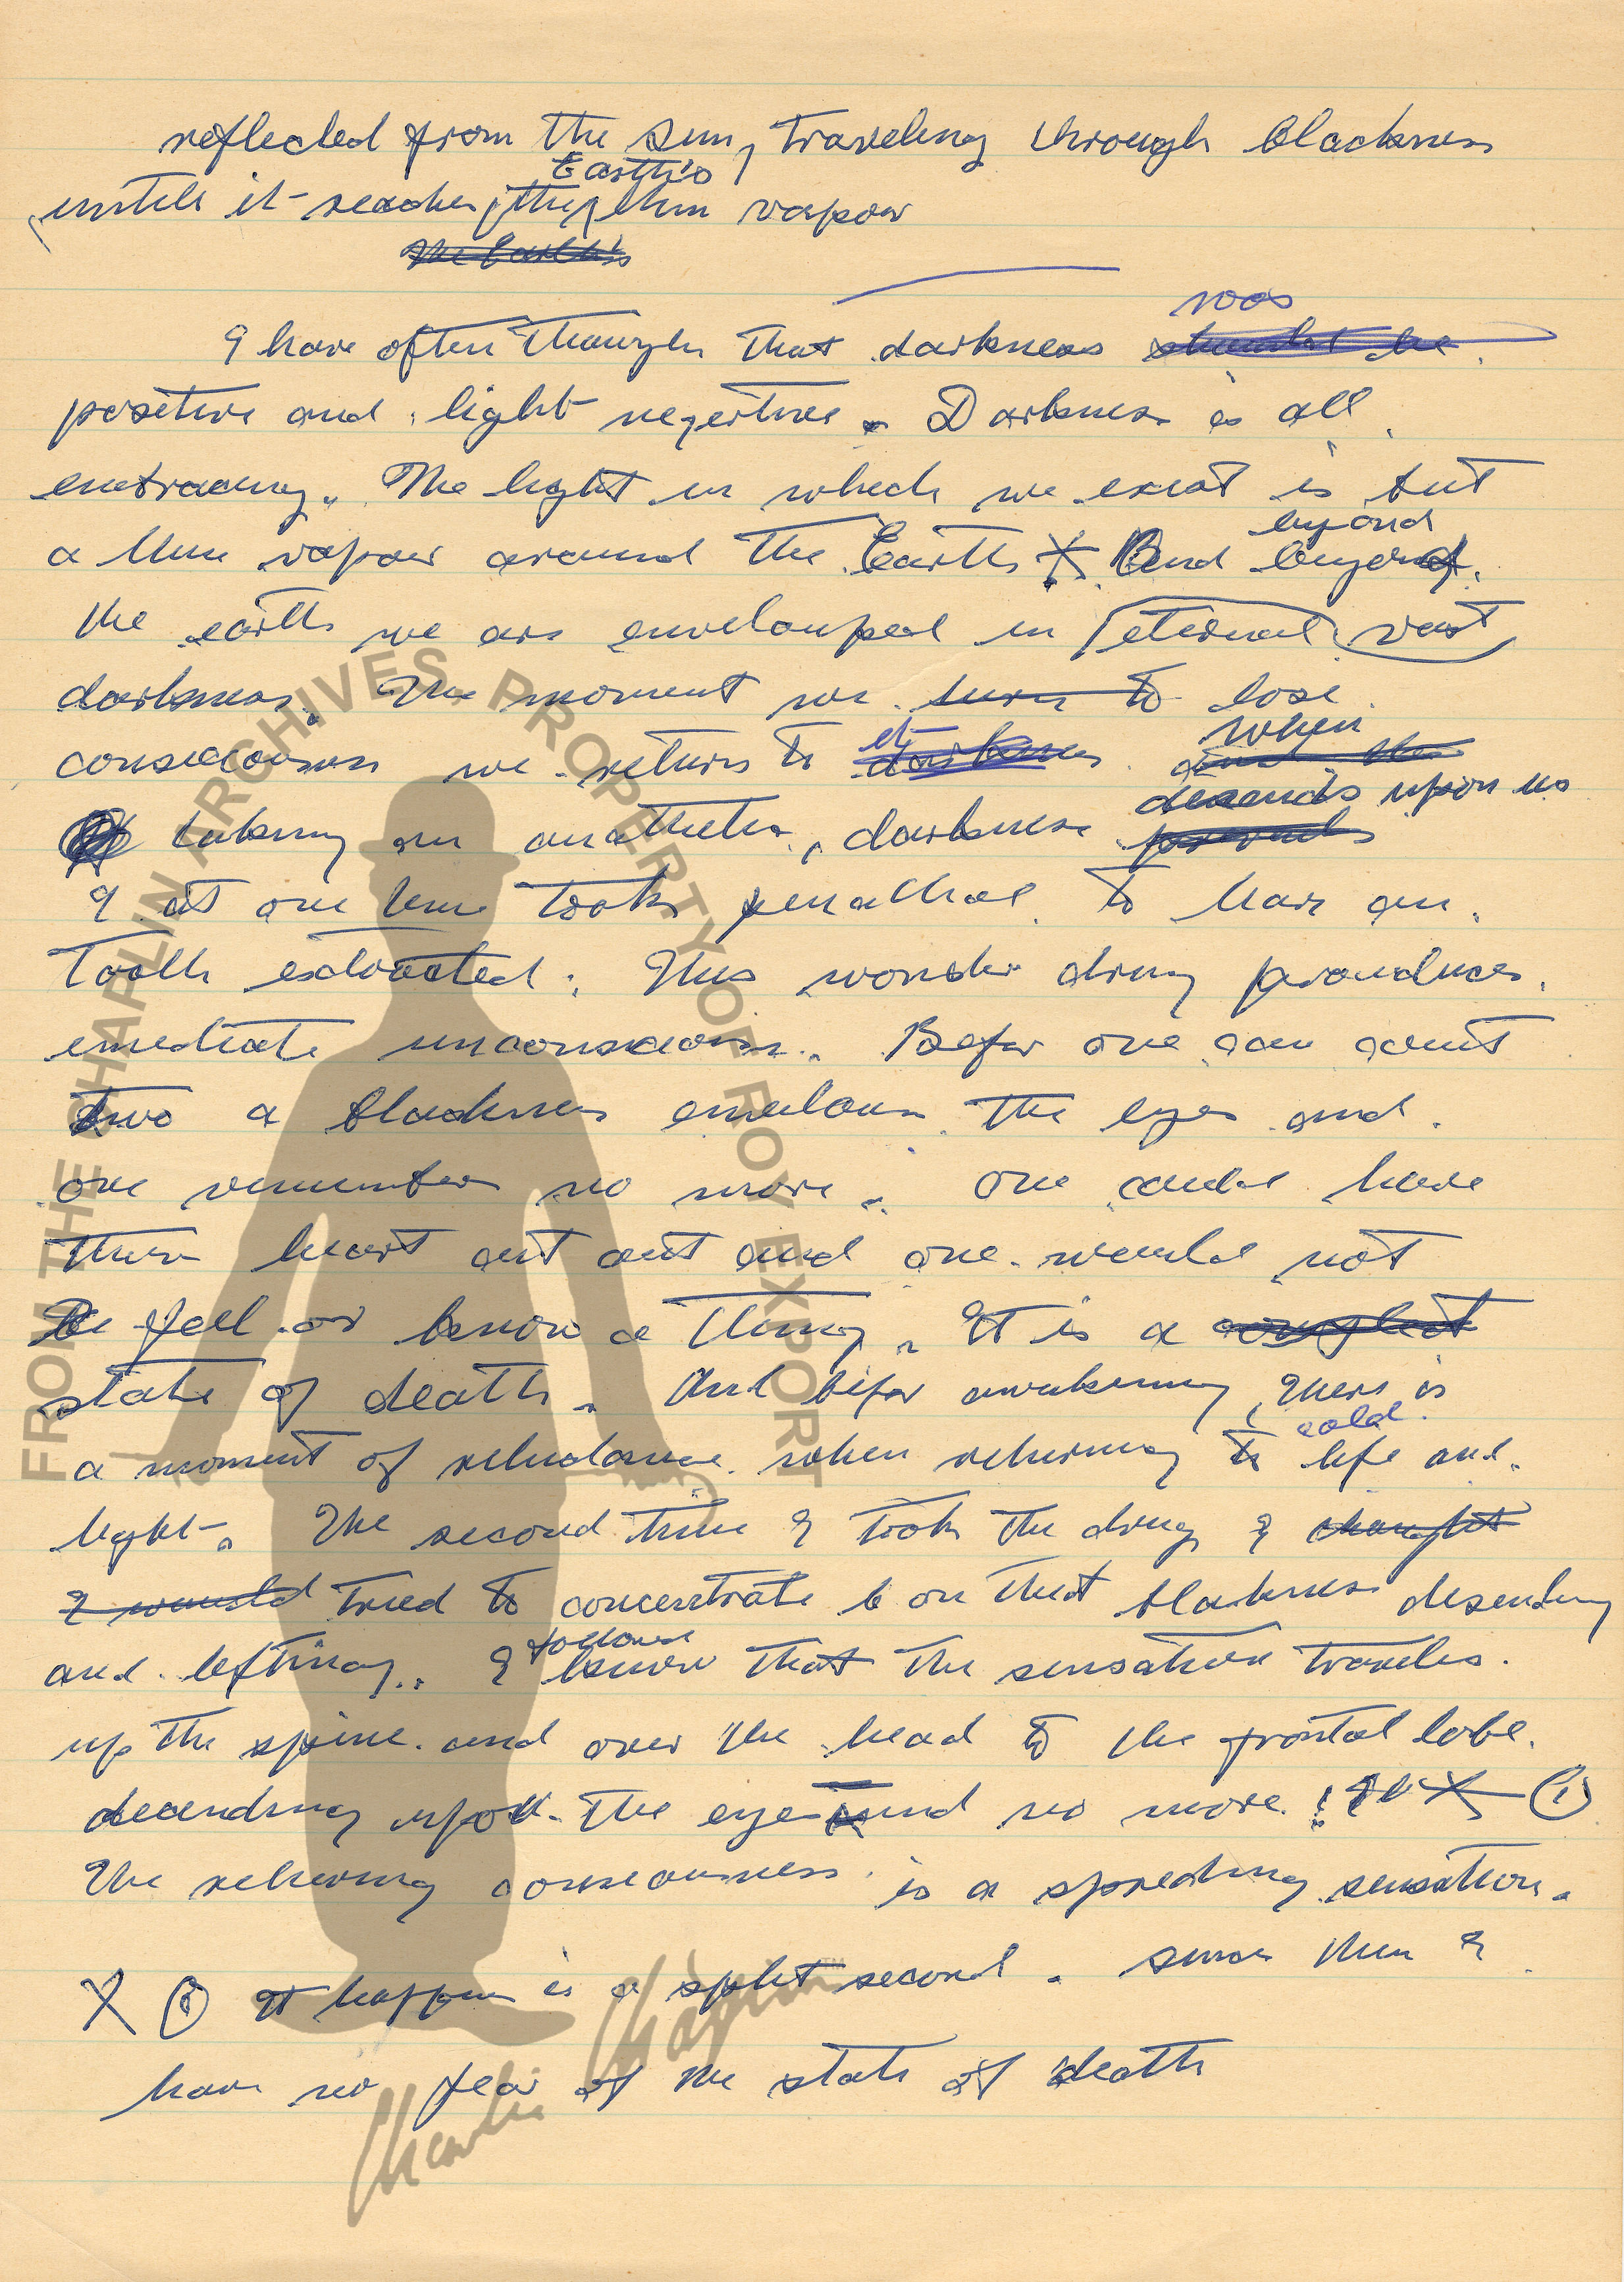 reflected from the sun, traveling through blackness
Earth's
untill it reaches the thin vapor
the Earth's
was
I have often thought that darkness should be
positive and light negative. Darkness is all
embracing. The light in which we exist is but
beyond
a thin vapor around the Earth X And beyond
the earth we are envelouped in eternal vast
darkness. The moment we turn to lose
it when
consciousness we return to darkness. and the
decends upon us
taking an anathetic, darkness
I at one time took penathol to have an
tooth extracted. This wonder drug produces
emediate unconscious. Befor one can count
two a blackness envelous the eyes and
one remember no more. One could have
their heart cut out and one would not
Be feel or know a thing. It is a complet
state of death. And befor awakening, there is
cold
a moment of reluctance when returning to life and
light. The second time I took the drug I thought
I would tried to concentrate b on that blackness desending
followed
and lifting. I know that the sensation traveles
up the spine and over the head to the frontal lobe
decending upon the eye and no more. X 1
The returning consciousness is a spreding sensation.
X It happen is a split second. Since then I
have no fear of the state of death
FROM THE CHAPLIN ARCHIVES PROPERTY OF ROY EXPORT
Charlie Chaplin